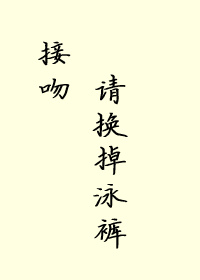 接吻
请换掉泳裤